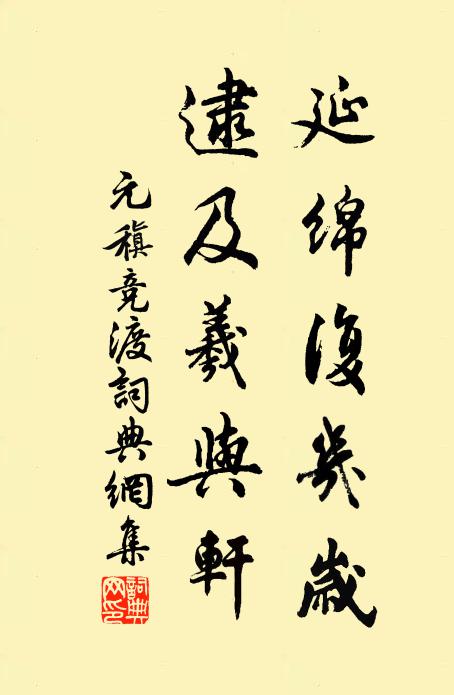 延绵復幾歲
逮及羲與軒
元稹競渡詞典網集
詞典網印